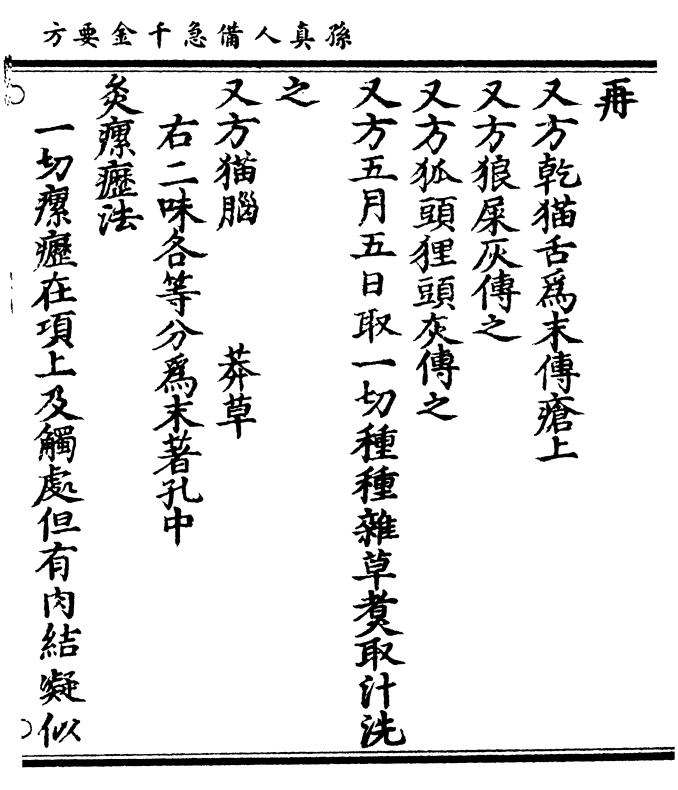 孫真人備急千金要方
再
又方乾猫舌爲末傅瘡上
又方狼屎灰傅之
又方狐頭狸頭灰傅之
又方五月五日取一切種種雜草煑取汁洗
之
又方猫腦　莽草
右二味各等分爲末著孔中
灸瘰癧法
一切瘰癧在項上及觸處但有肉結凝似